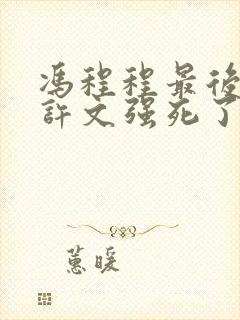 馮程程最後
許文强死了
蕙暖